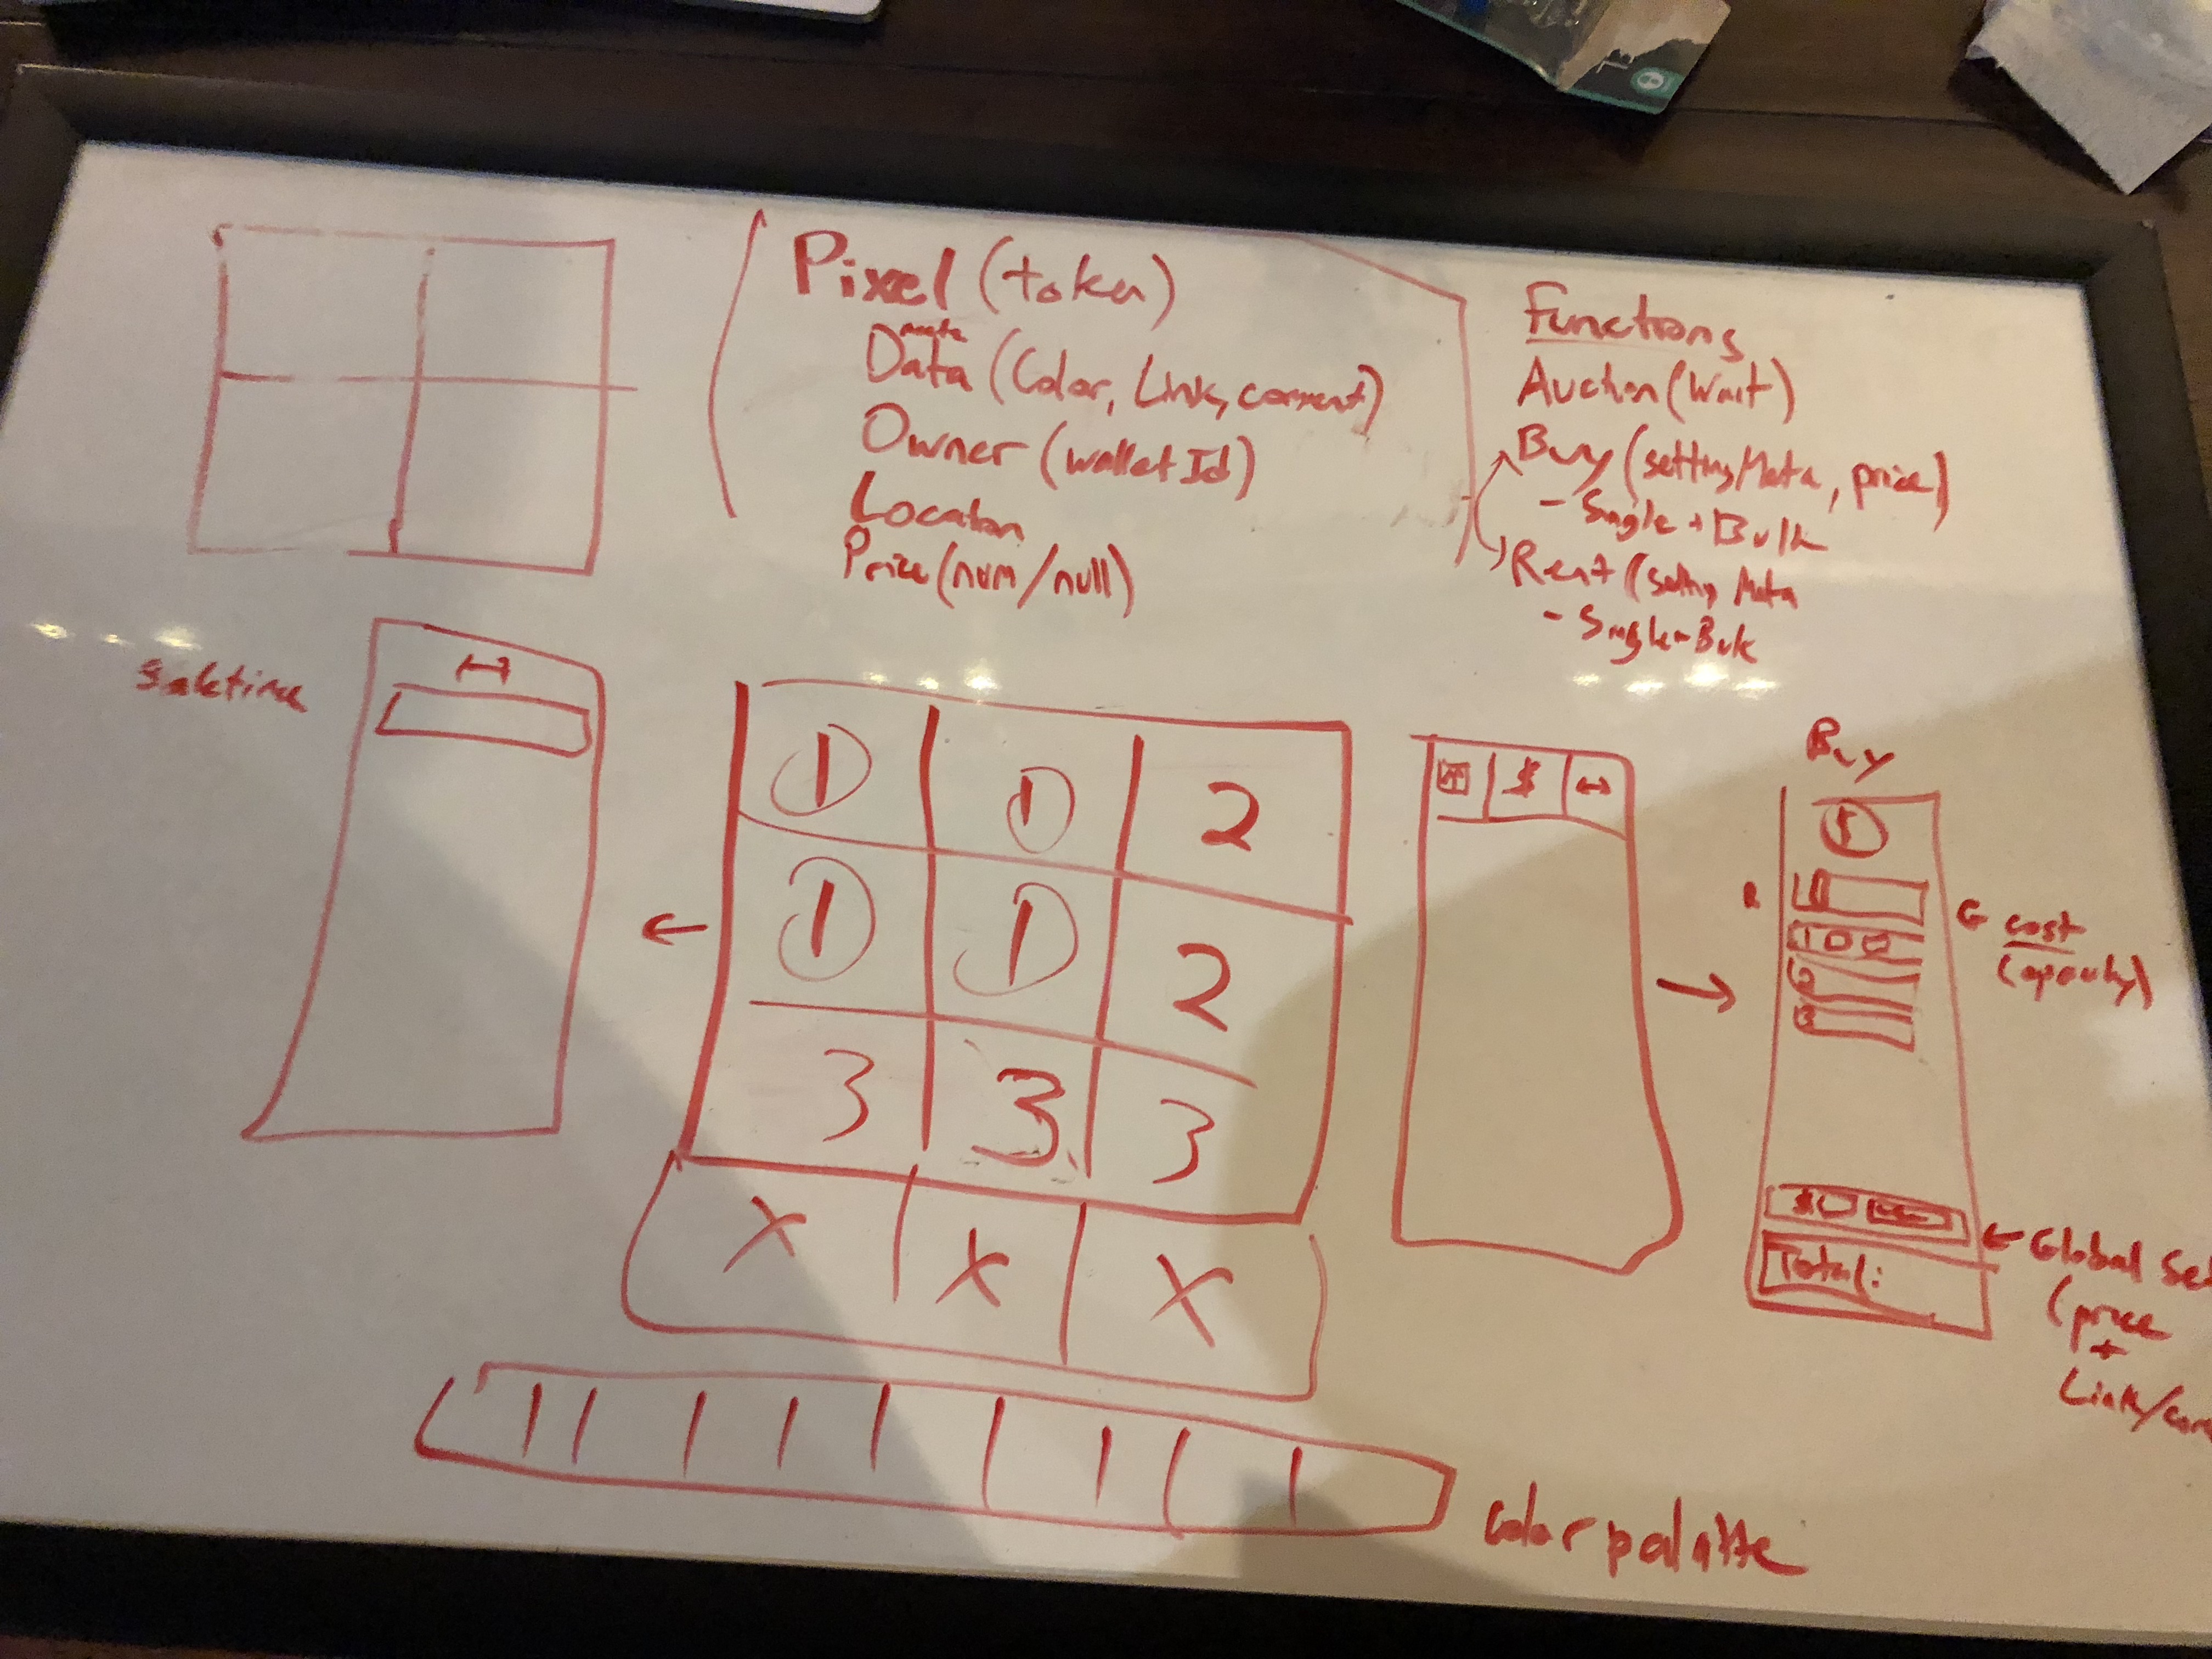 Pixel (token)
meta
Data (Color, Link, comment)
Owner (wallet Id)
Location
Price (num/null)
Functions
Auction (Wait)
Buy (setting Meta, price)
- Single + Bulk
Rent (setting Meta
- Single - Bulk
1 1 2
1 1 2
3 3 3
X X X
color palette
$
Buy
R
G
cost
Total:
Global Se
(price
+
Link/com